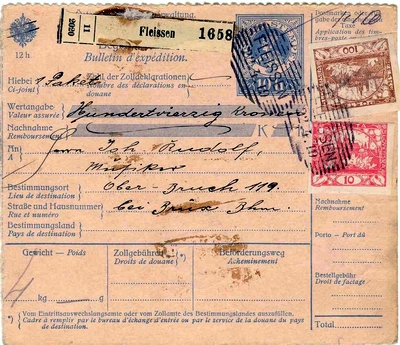 Fleissen 1658
II
12 h
Bulletin d'expédition.
Hiebei 1 Paket Zahl der Zolldeklarationen
Ci-joint Nombre des déclarations en douane
Wertangabe Hundertvierzig Kronen
Valeur assurée
Nachnahme K
Remboursement
An Herrn Joh. Rudolf,
A
Musiker
Bestimmungsort Ober-Bruch 119.
Lieu de destination
Straße und Hausnummer bei Brüx Bhm.
Rue et numéro
Bestimmungsland
Pays de destination
Gewicht — Poids
Zollgebühren
Droits de douane
Beförderungsweg
Acheminement
4
kg g
*) Vom Eintrittsauswechslungsamte oder vom Zollamte des Bestimmungslandes auszufüllen.
*) Cadre à remplir par le bureau d'échange d'entrée ou par le service de la douane du pays de destination.
Taxe
Application des timbres
100
10
Nachnahme
Remboursement
Porto — Port dû
Bestellgebühr
Droit de factage
Total